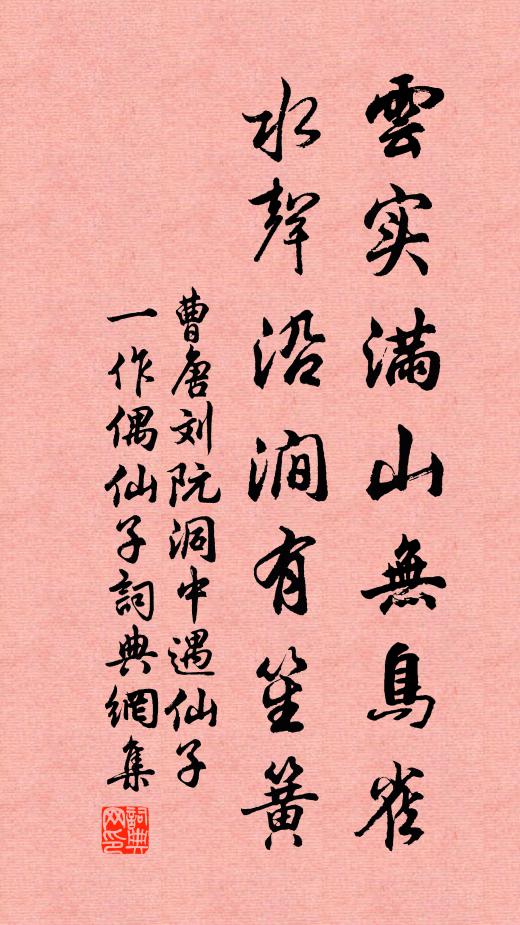 雲实满山無鳥雀
水聲沿澗有笙簧
曹唐刘阮洞中遇仙子
一作偶仙子詞典網集
詞典網印